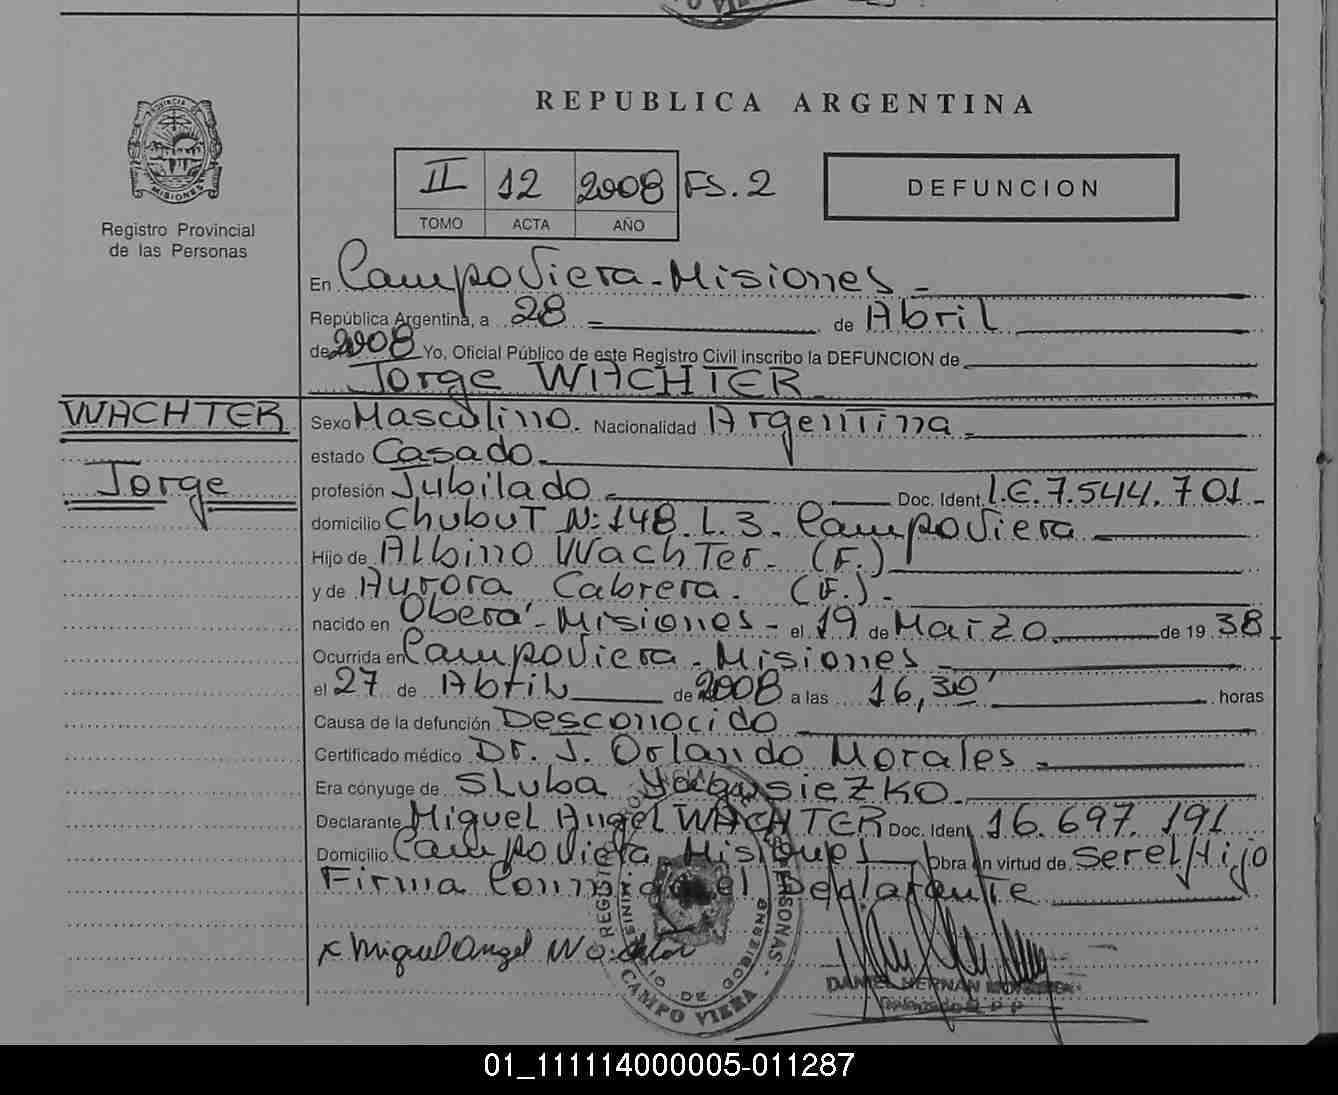 REPUBLICA ARGENTINA
PROVINCIA DE
MISIONES
Registro Provincial
de las Personas
II 12 2008 FS. 2
TOMO ACTA AÑO
DEFUNCION
En Campo Viera - Misiones -
República Argentina, a 28 - de Abril
de 2008 Yo, Oficial Público de este Registro Civil inscribo la DEFUNCION de
Jorge WACHTER
WACHTER
Jorge
Sexo Masculino. Nacionalidad Argentina -
estado Casado -
profesión Jubilado - Doc. Ident. L.E. 7.544.701 -
domicilio Chubut Nº 148. L. 3. Campo Viera -
Hijo de Albino Wachter. (F.)
y de Aurora Cabrera. (F.) -
nacido en Oberá - Misiones - el 19 de Marzo de 19 38
Ocurrida en Campo Viera - Misiones -
el 27 de Abril de 2008 a las 16,30' horas
Causa de la defunción Desconocido
Certificado médico Dr. J. Orlando Morales -
Era cónyuge de Sluba
Declarante Miguel Angel WACHTER Doc. Iden. 16.697.191
Domicilio Campo Viera. Misiones Obra en virtud de ser el Hijo
Firma Conmigo el Declarante
x Miguel Angel Wachter
REGISTRO PERSONAS
MINISTERIO DE GOBIERNO
CAMPO VIERA
DANIEL HERNAN
01_111114000005-011287